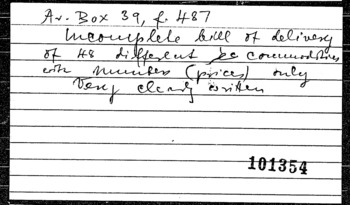 Ar. Box 39, f. 487
Incomplete bill of delivery
of 48 different commodities
with numbers (prices) only
Very clearly written
101354